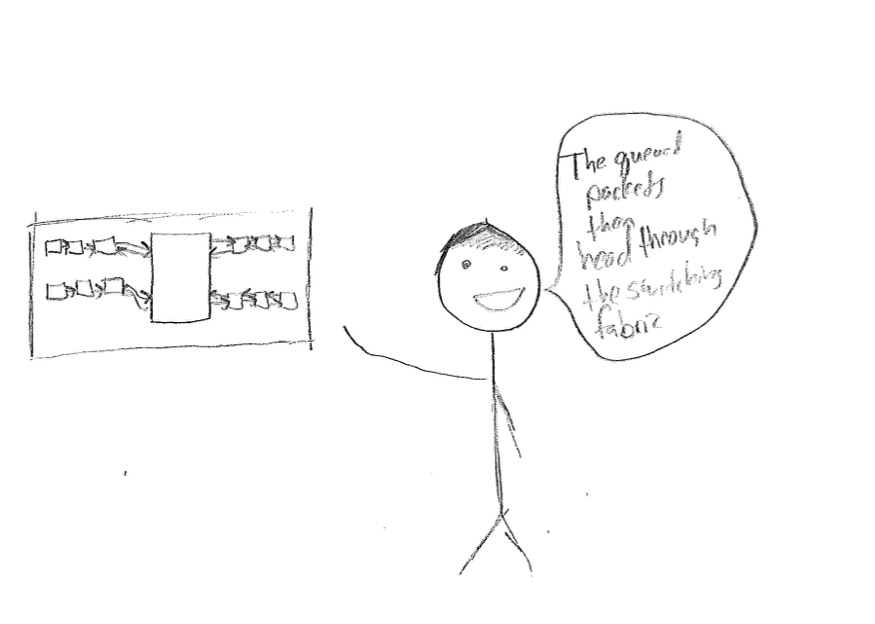 The queued
packets
then
head through
the switching
fabric